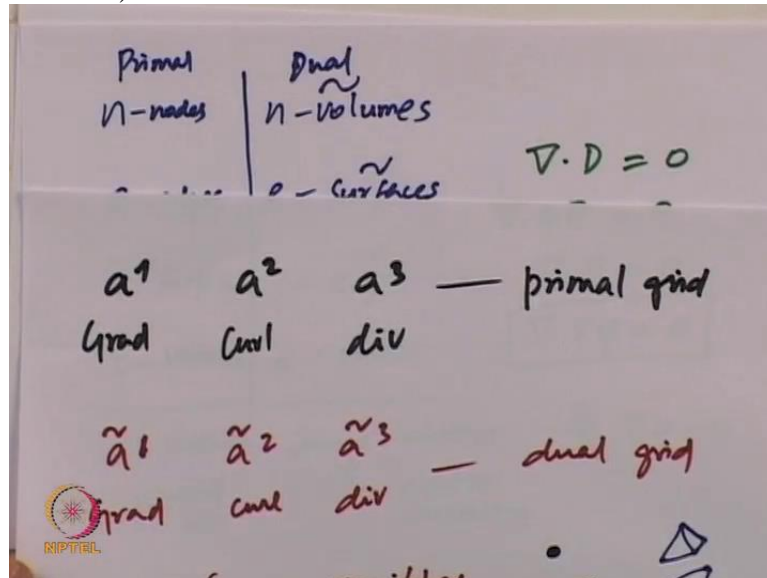 Primal Dual
n-nodes ñ-volumes
e - surfaces
∇·D = 0
a¹ a² a³ — primal grid
Grad Curl div
ã¹ ã² ã³ — dual grid
Grad curl div
NPTEL